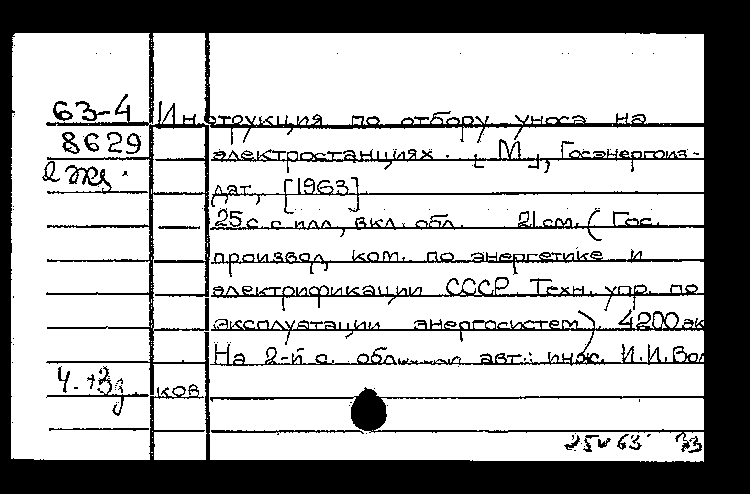 63-4 Инструкция по отбору уноса на
8629 электростанциях. [М.], Госэнергоиз-
2 экз. дат, [1963]
25 с. с илл., вкл. обл. 21 см. (Гос.
производ. ком. по энергетике и
электрификации СССР Техн. упр. по
эксплуатации энергосистем). 4200 эк
На 2-й с. обл. авт.: инж. И.И. Вол
ков
25 V 63